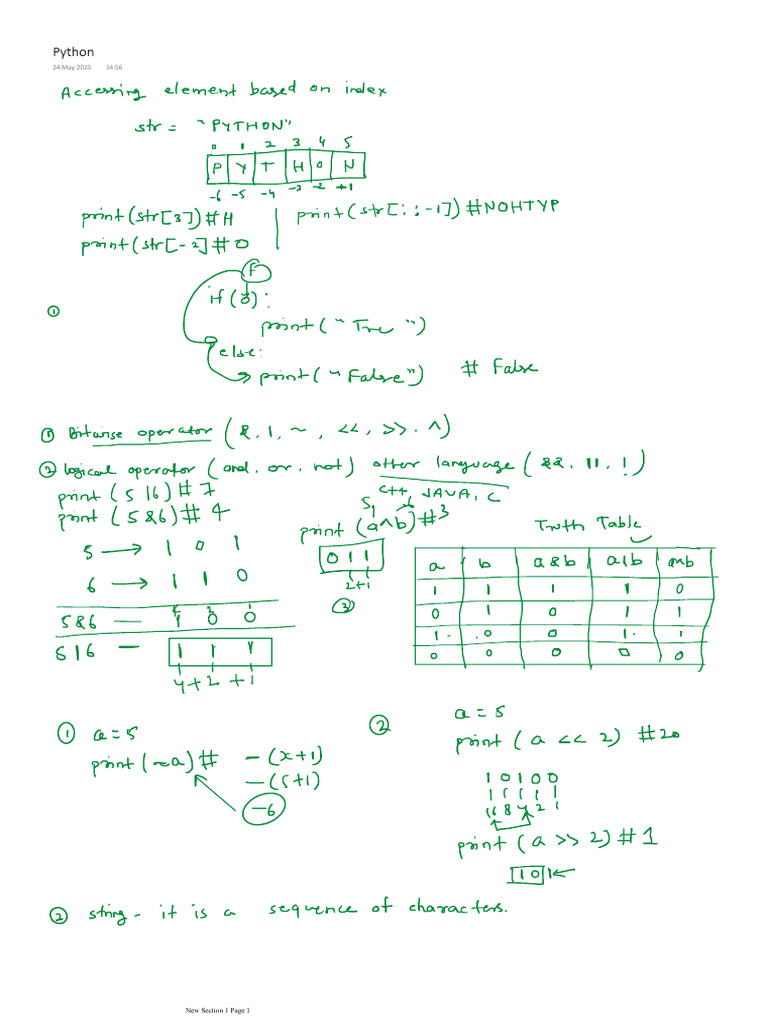 Python
24 May 2025 14:56
Accessing element based on index
str = "PYTHON"
0 1 2 3 4 5
P Y T H O N
-6 -5 -4 -3 -2 +1
print(str[3])#H
print(str[::-1])#NOHTYP
print(str[-2]#O
F
if(0):
①
print("True")
else:
print("False") # False
① Bitwise operator (&, |, ~, <<, >>. ^)
② logical operator (and. or. not) other language (&&. ||. !)
C++, JAVA, C
print(5|6)#7
print(5&6)#4
5 6
print(a^b)#3
0 1 1
2+1
③
Truth Table
5 → 1 0 1
6 → 1 1 0
5&6 — 1 0 0
5|6 — 1 1 1
4+2+1
a b a&b a|b a^b
1 1 1 1 0
0 1 0 1 1
1. .0 0 1. 1
0 0 0 0 0
① a=5
print(~a)# -(x+1)
-(5+1)
-6
②
a=5
print(a << 2) #20
1 0 1 0 0
16 8 4 2 1
print(a >> 2)#1
1 0 1
② string - it is a sequence of characters.
New Section 1 Page 1